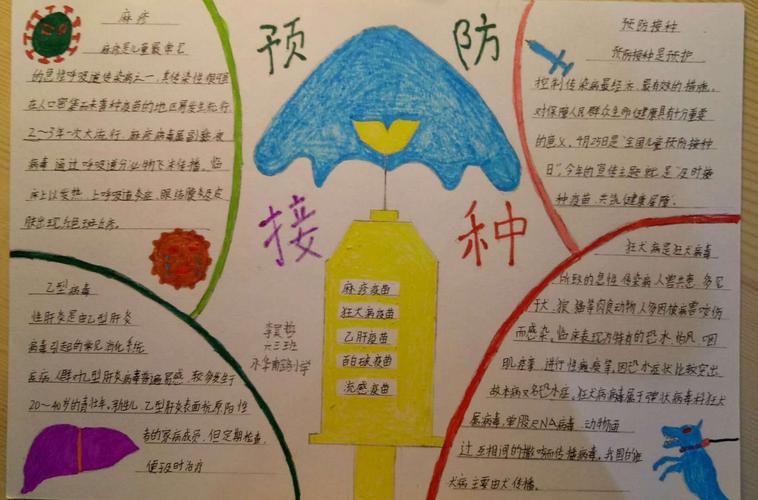 预 防
接 种
麻疹
麻疹是儿童最常见
的急性呼吸道传染病之一,其传染性很强
在人口密集而未普种疫苗的地区易发生流行
2～3年一次大流行.麻疹病毒属副黏液
病毒通过呼吸道分泌物飞沫传播.临
床上以发热.上呼吸道炎症.眼结膜炎及皮
肤出现
乙型病毒
性肝炎是由乙型肝炎
病毒引起的常见消化系统
疾病.人群对乙型肝炎病毒普遍易感.较多发生于
20～40岁的青壮年.乙型肝炎表面抗原阳性
者的家庭成员.但定期检查.
便及时治疗
麻疹疫苗
狂犬病疫苗
乙肝疫苗
百白破疫苗
流感疫苗
六三班
永华南路小学
预防接种
预防接种是预护
控制传染病最经济.最有效的措施.
对保障人民群众生命健康具有十分重要
的意义.4月25日是"全国儿童预防接种
日".今年的宣传主题就是"及时接
种疫苗.共筑健康屏障.
狂犬病是狂犬病毒
所致的急性传染病人兽共患.多见
于犬.狼.猫等肉食动物人多因被病兽咬伤
而感染.临床表现为特有的恐水.怕风.咽
肌痉挛.进行性瘫痪等.因恐水症状比较突出.
故本病又名恐水症.狂犬病病毒属于弹状病毒科狂犬
属病毒.单股RNA病毒.动物通
过互相间的撕咬而传播病毒.我国的狂
犬病主要由犬传播.